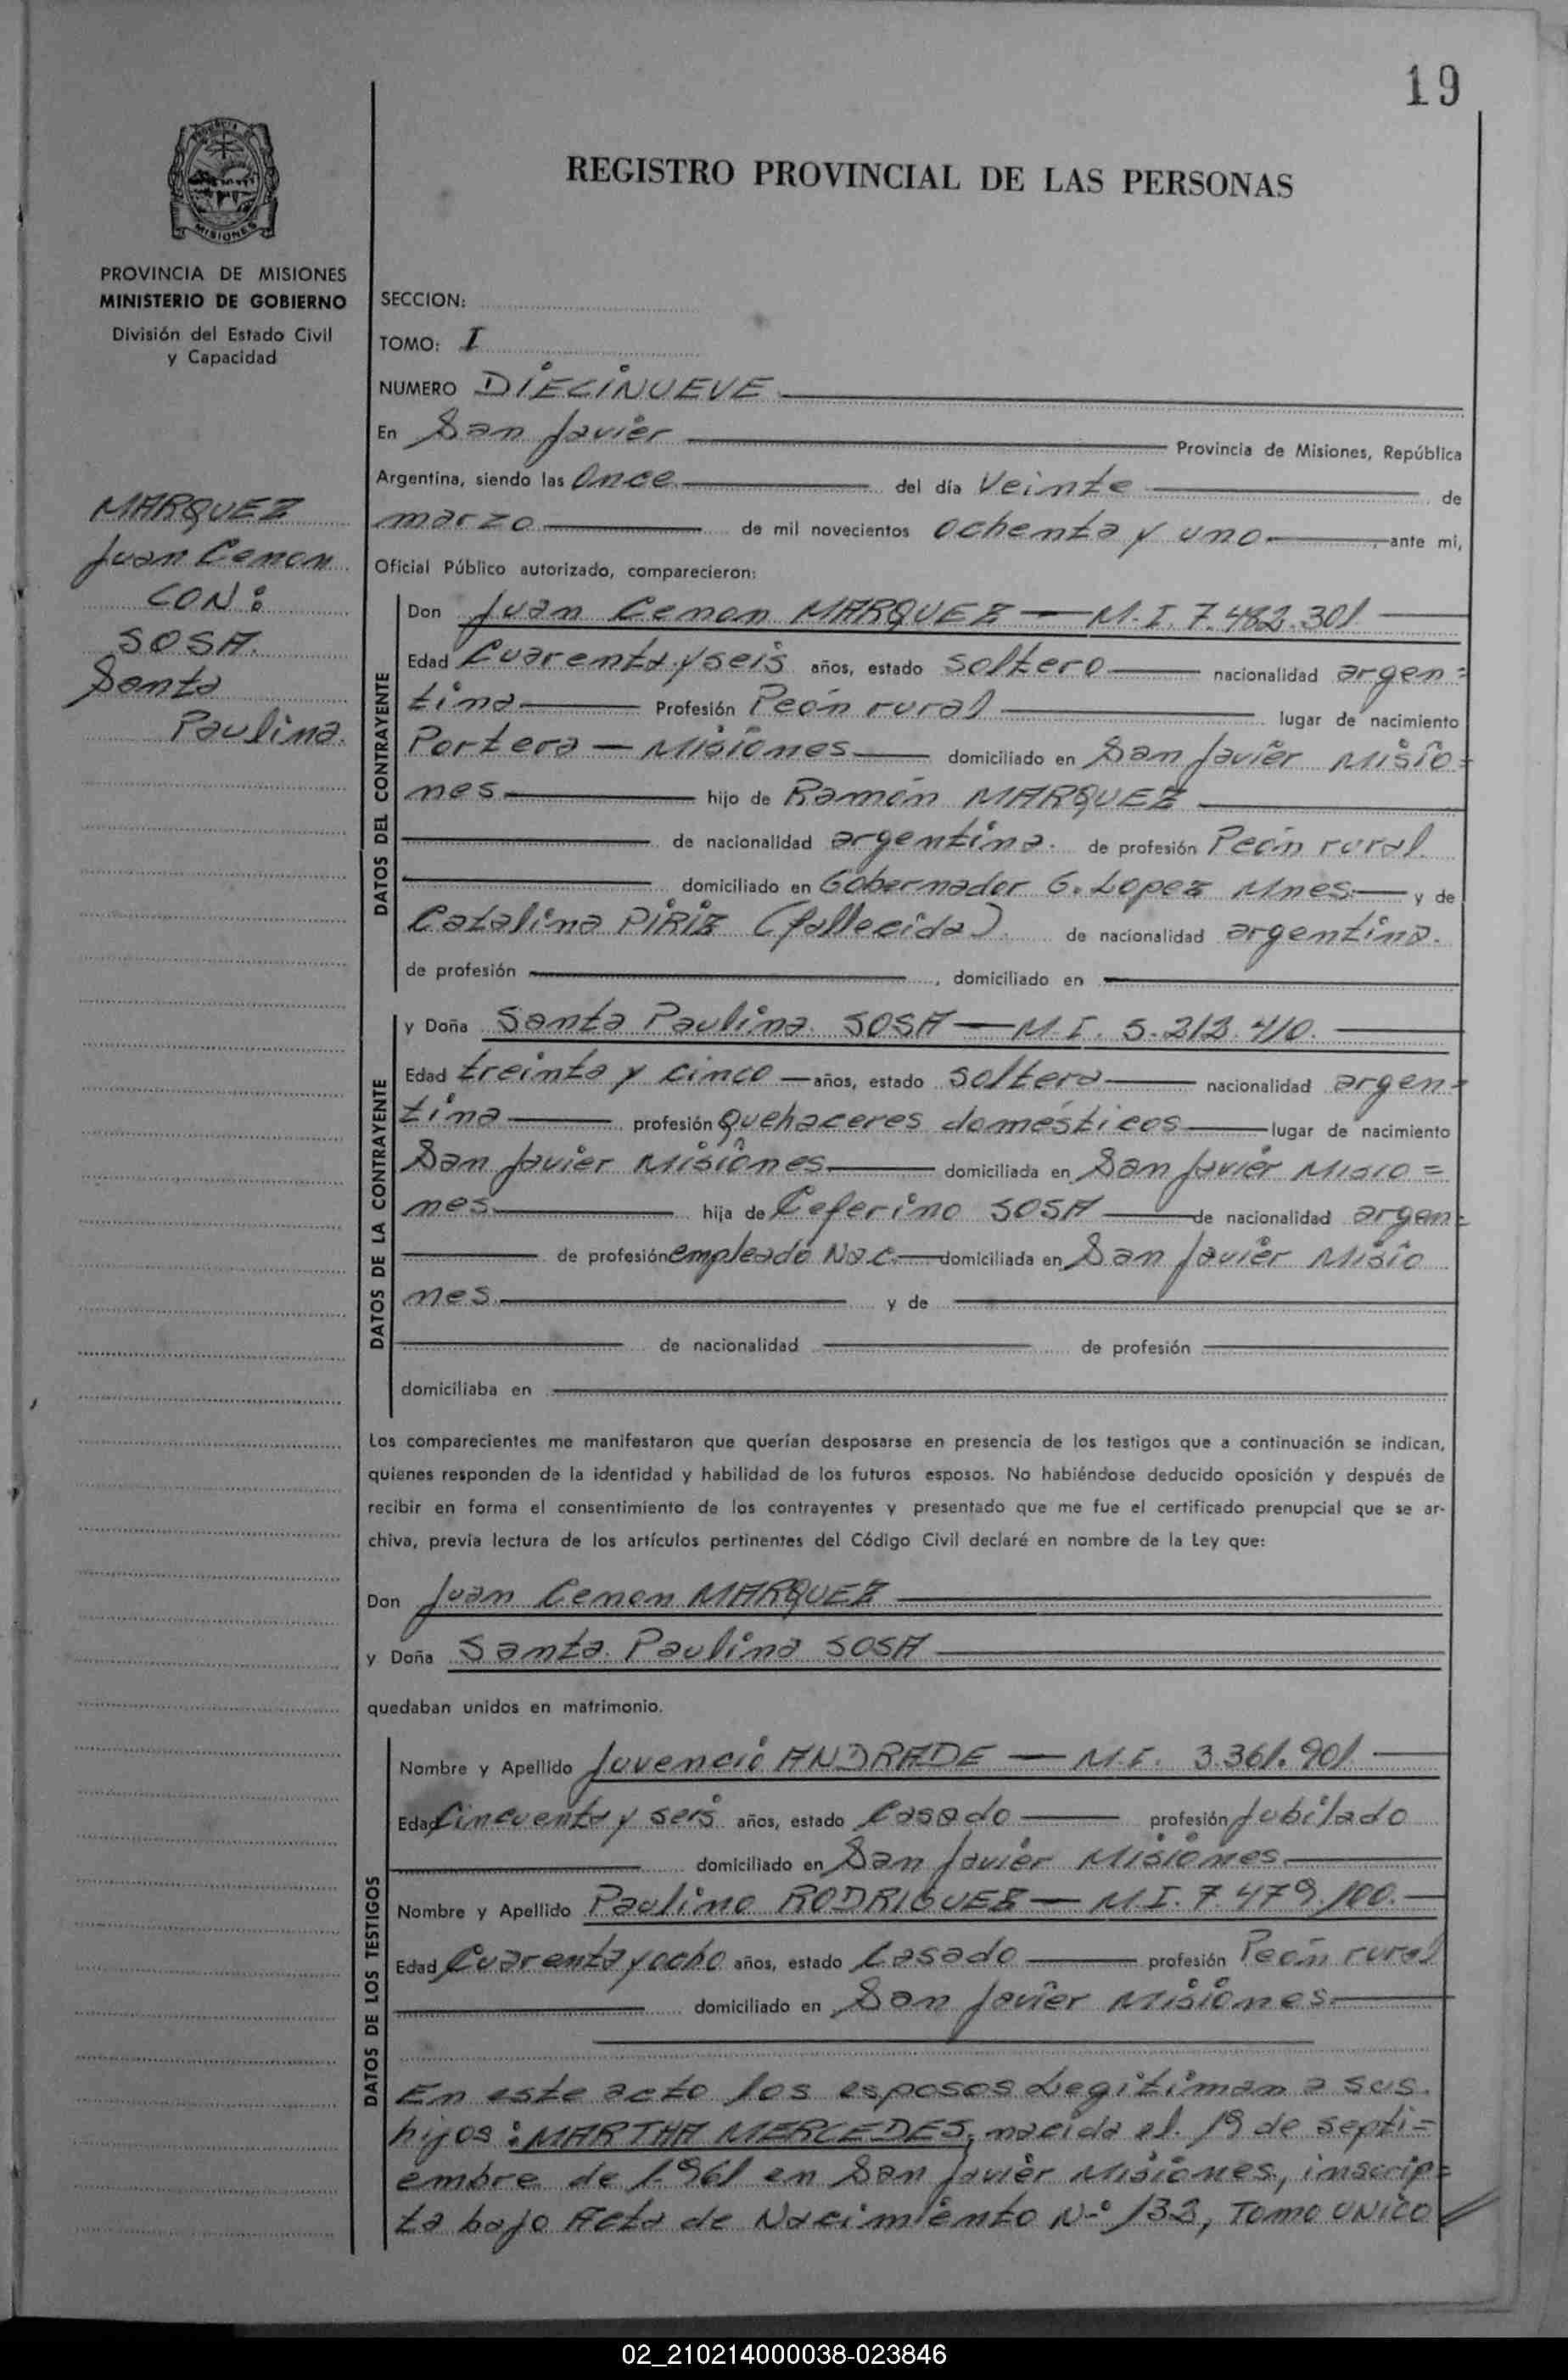 19
REGISTRO PROVINCIAL DE LAS PERSONAS
MISIONES
PROVINCIA DE MISIONES
MINISTERIO DE GOBIERNO
División del Estado Civil
y Capacidad
MARQUEZ
Juan Cenon
CON:
SOSA
Santa
Paulina.
SECCION:
TOMO: I
NUMERO DIECINUEVE
En San Javier Provincia de Misiones, República
Argentina, siendo las Once del día Veinte de
marzo de mil novecientos ochenta y uno, ante mi,
Oficial Público autorizado, comparecieron:
DATOS DEL CONTRAYENTE
Don Juan Cenon MARQUEZ — M.I. 7.482.301
Edad Cuarenta y seis años, estado soltero nacionalidad argen=
tina Profesión Peón rural lugar de nacimiento
Portera — Misiones domiciliado en San Javier Misio=
nes hijo de Ramón MARQUEZ
de nacionalidad argentina. de profesión Peón rural
domiciliado en Gobernador G. Lopez Mnes. y de
Catalina PIRIZ (fallecida) de nacionalidad argentina.
de profesión , domiciliado en
DATOS DE LA CONTRAYENTE
y Doña Santa Paulina SOSA — M.I. 5.212.410.
Edad treinta y cinco años, estado soltera nacionalidad argen=
tina profesión quehaceres domésticos lugar de nacimiento
San Javier Misiones domiciliada en San Javier Misio=
nes hija de Ceferino SOSA de nacionalidad argen=
de profesión empleado Nac. domiciliada en San Javier Misio
nes y de
de nacionalidad de profesión
domiciliaba en
Los comparecientes me manifestaron que querían desposarse en presencia de los testigos que a continuación se indican,
quienes responden de la identidad y habilidad de los futuros esposos. No habiéndose deducido oposición y después de
recibir en forma el consentimiento de los contrayentes y presentado que me fue el certificado prenupcial que se ar-
chiva, previa lectura de los artículos pertinentes del Código Civil declaré en nombre de la Ley que:
Don Juan Cenon MARQUEZ
y Doña Santa Paulina SOSA
quedaban unidos en matrimonio.
DATOS DE LOS TESTIGOS
Nombre y Apellido Juvencio ANDRADE — M.I. 3.361.901
Edad Cincuenta y seis años, estado Casado profesión Jubilado
domiciliado en San Javier Misiones
Nombre y Apellido Paulino RODRIGUEZ — M.I. 7.479.100.
Edad Cuarenta y ocho años, estado Casado profesión Peón rural
domiciliado en San Javier Misiones
En este acto los esposos Legitiman a sus
hijos: MARTHA MERCEDES, nacida el 19 de septi=
embre de 1.961 en San Javier Misiones, inscrip=
ta bajo Acta de Nacimiento Nº 133, TOMO UNICO
02_210214000038-023846